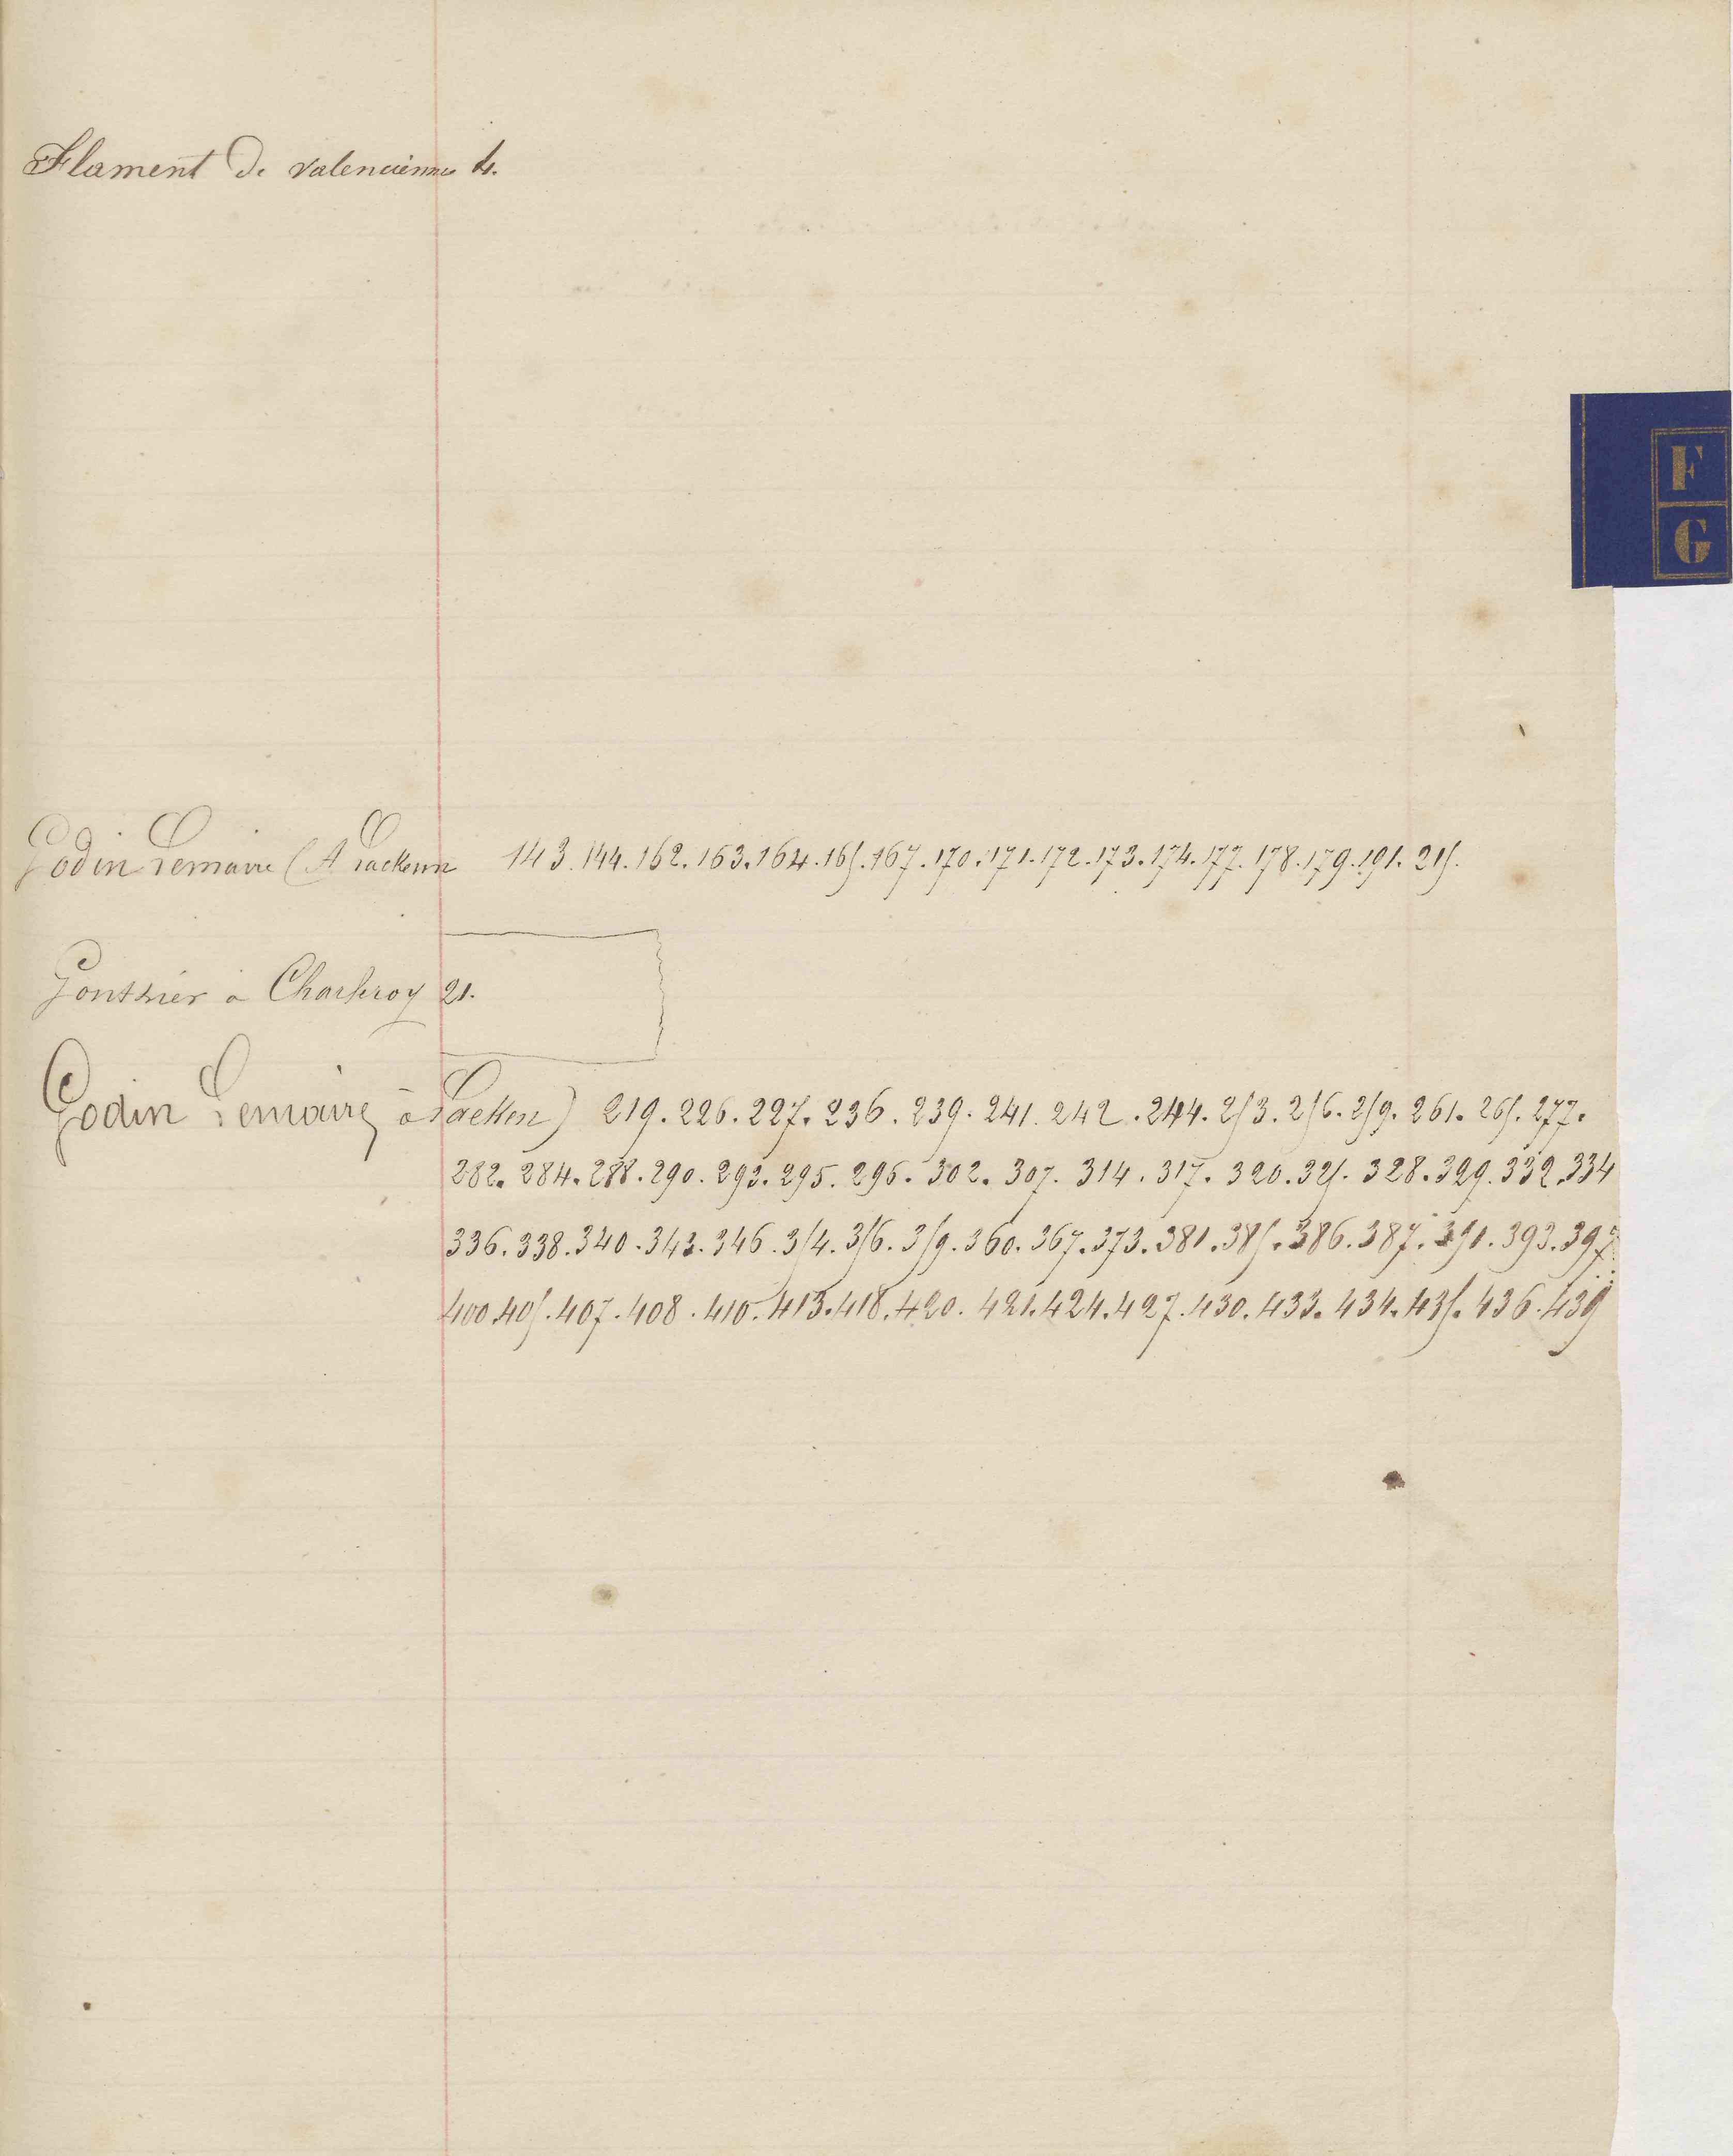 Flament De valenciennes 4.
F
G
Godin Lemaire (A Lacken 143.144.162.163.164.165.167.170.171.172.173.174.177.178.179.191.215.
Gonthier a Charleroy 21.
Godin Lemaire à Lacken) 219.226.227.236.239.241.242.244.253.256.259.261.265.277.
282.284.288.290.293.295.296.302.307.314.317.320.325.328.329.332.334
336.338.340.343.346.354.356.359.360.367.373.381.385.386.387.391.393.397
400.405.407.408.410.413.418.420.421.424.427.430.433.434.435.436.439